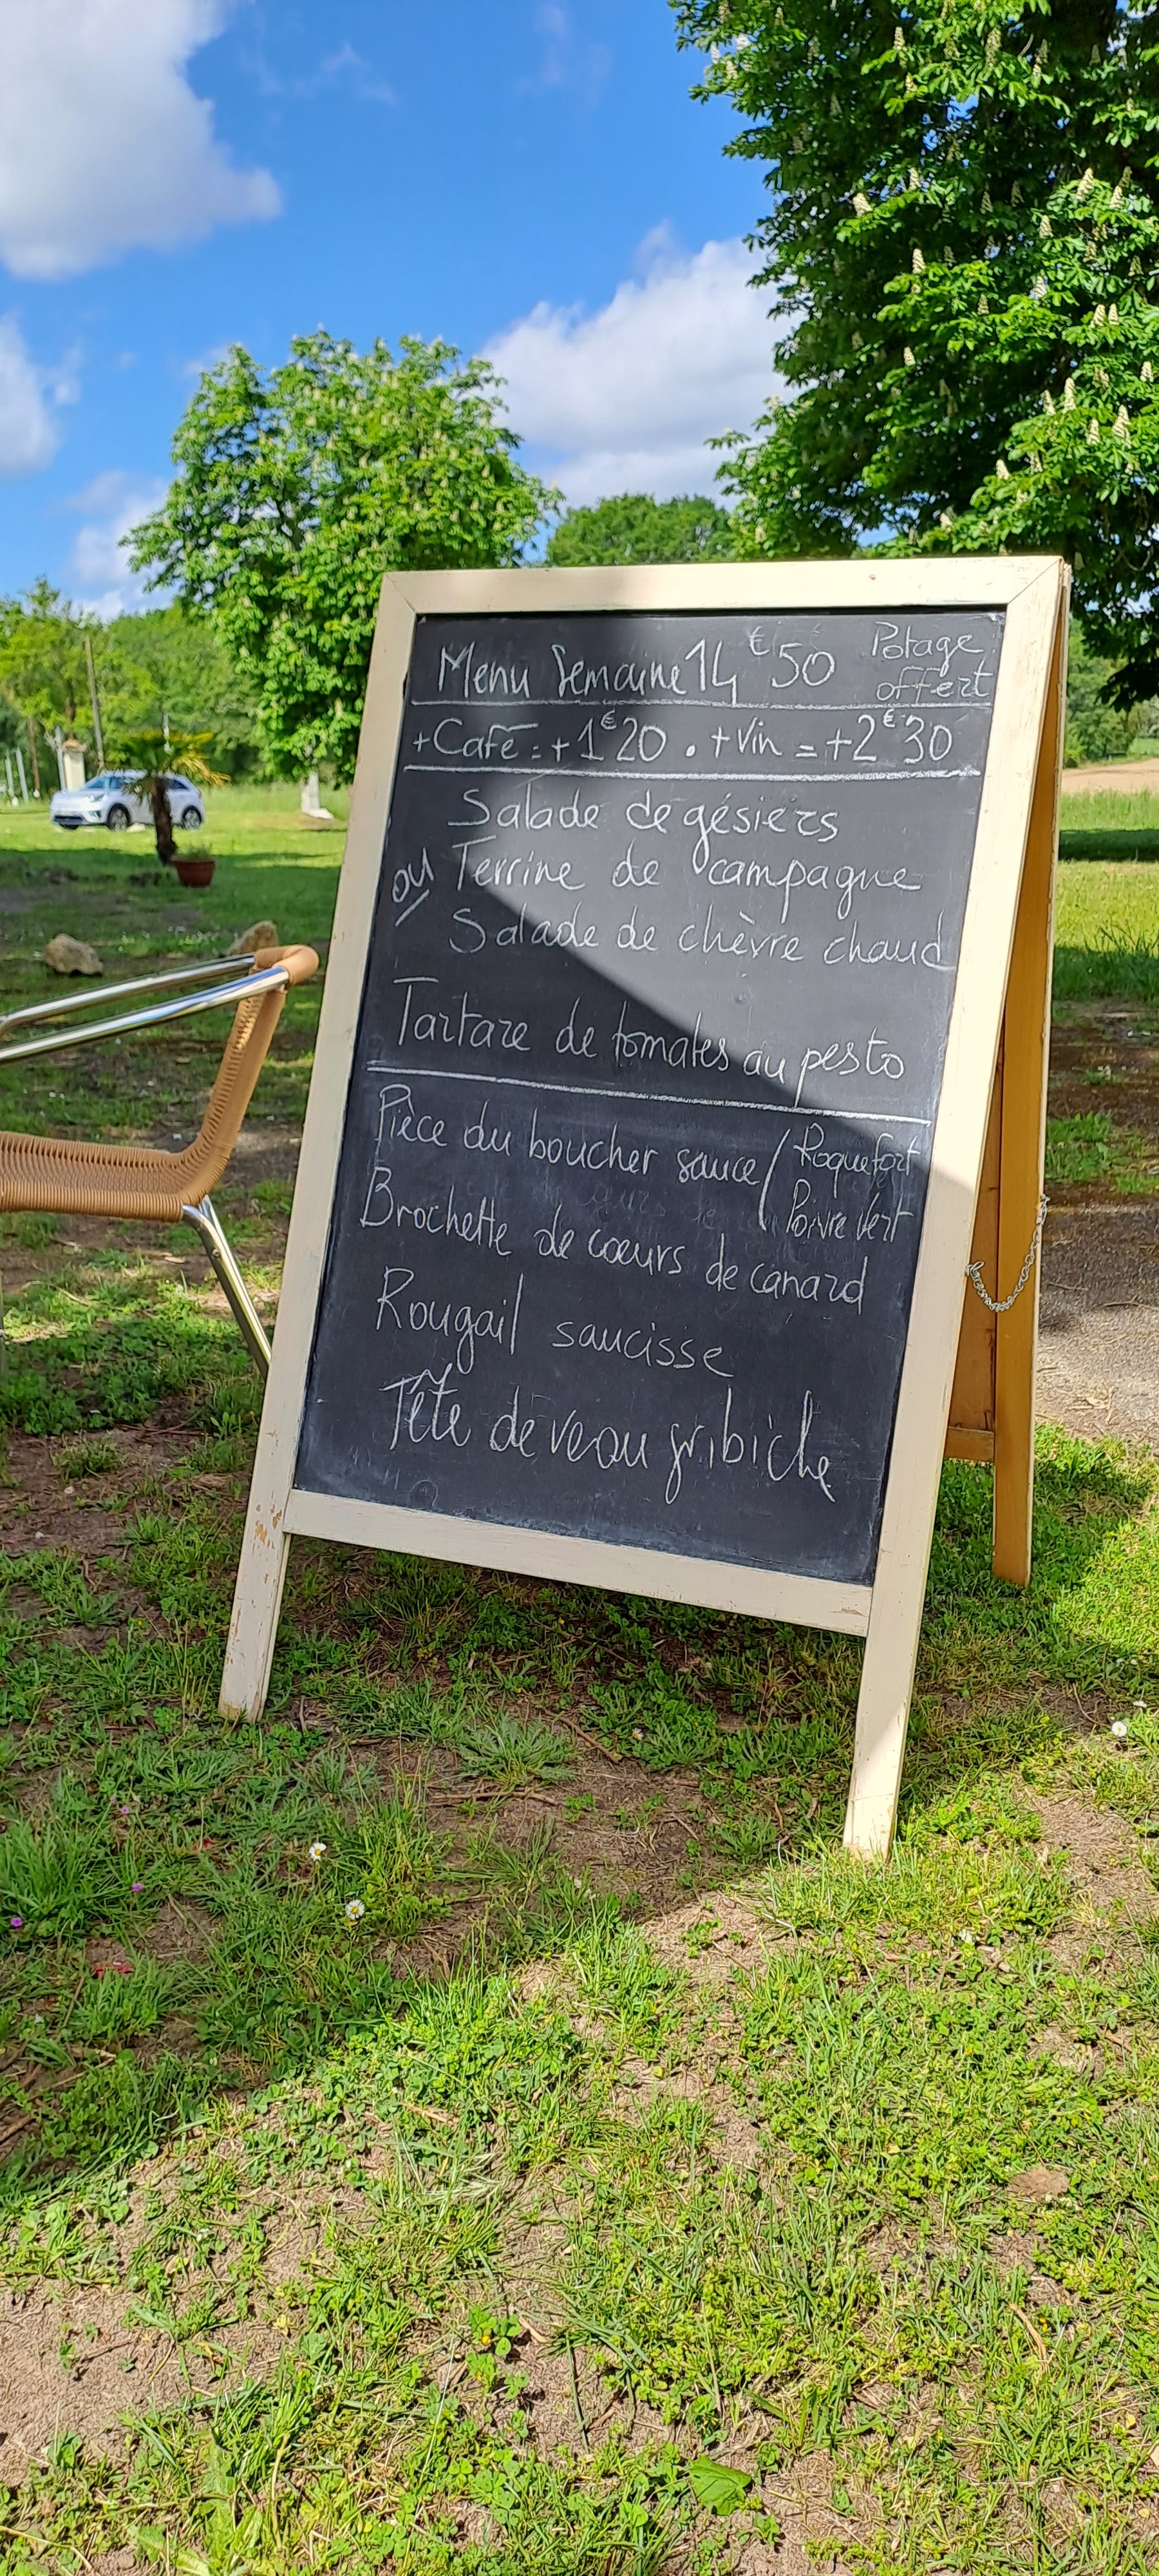 Menu Semaine 14€50 Potage offert
+Café = +1€20 . +Vin = +2€30
Salade de gésiers
ou Terrine de campagne
Salade de chèvre chaud
Tartare de tomates au pesto
Pièce du boucher sauce / Roquefort
Poivre vert
Brochette de cœurs de canard
Rougail saucisse
Tête de veau gribiche